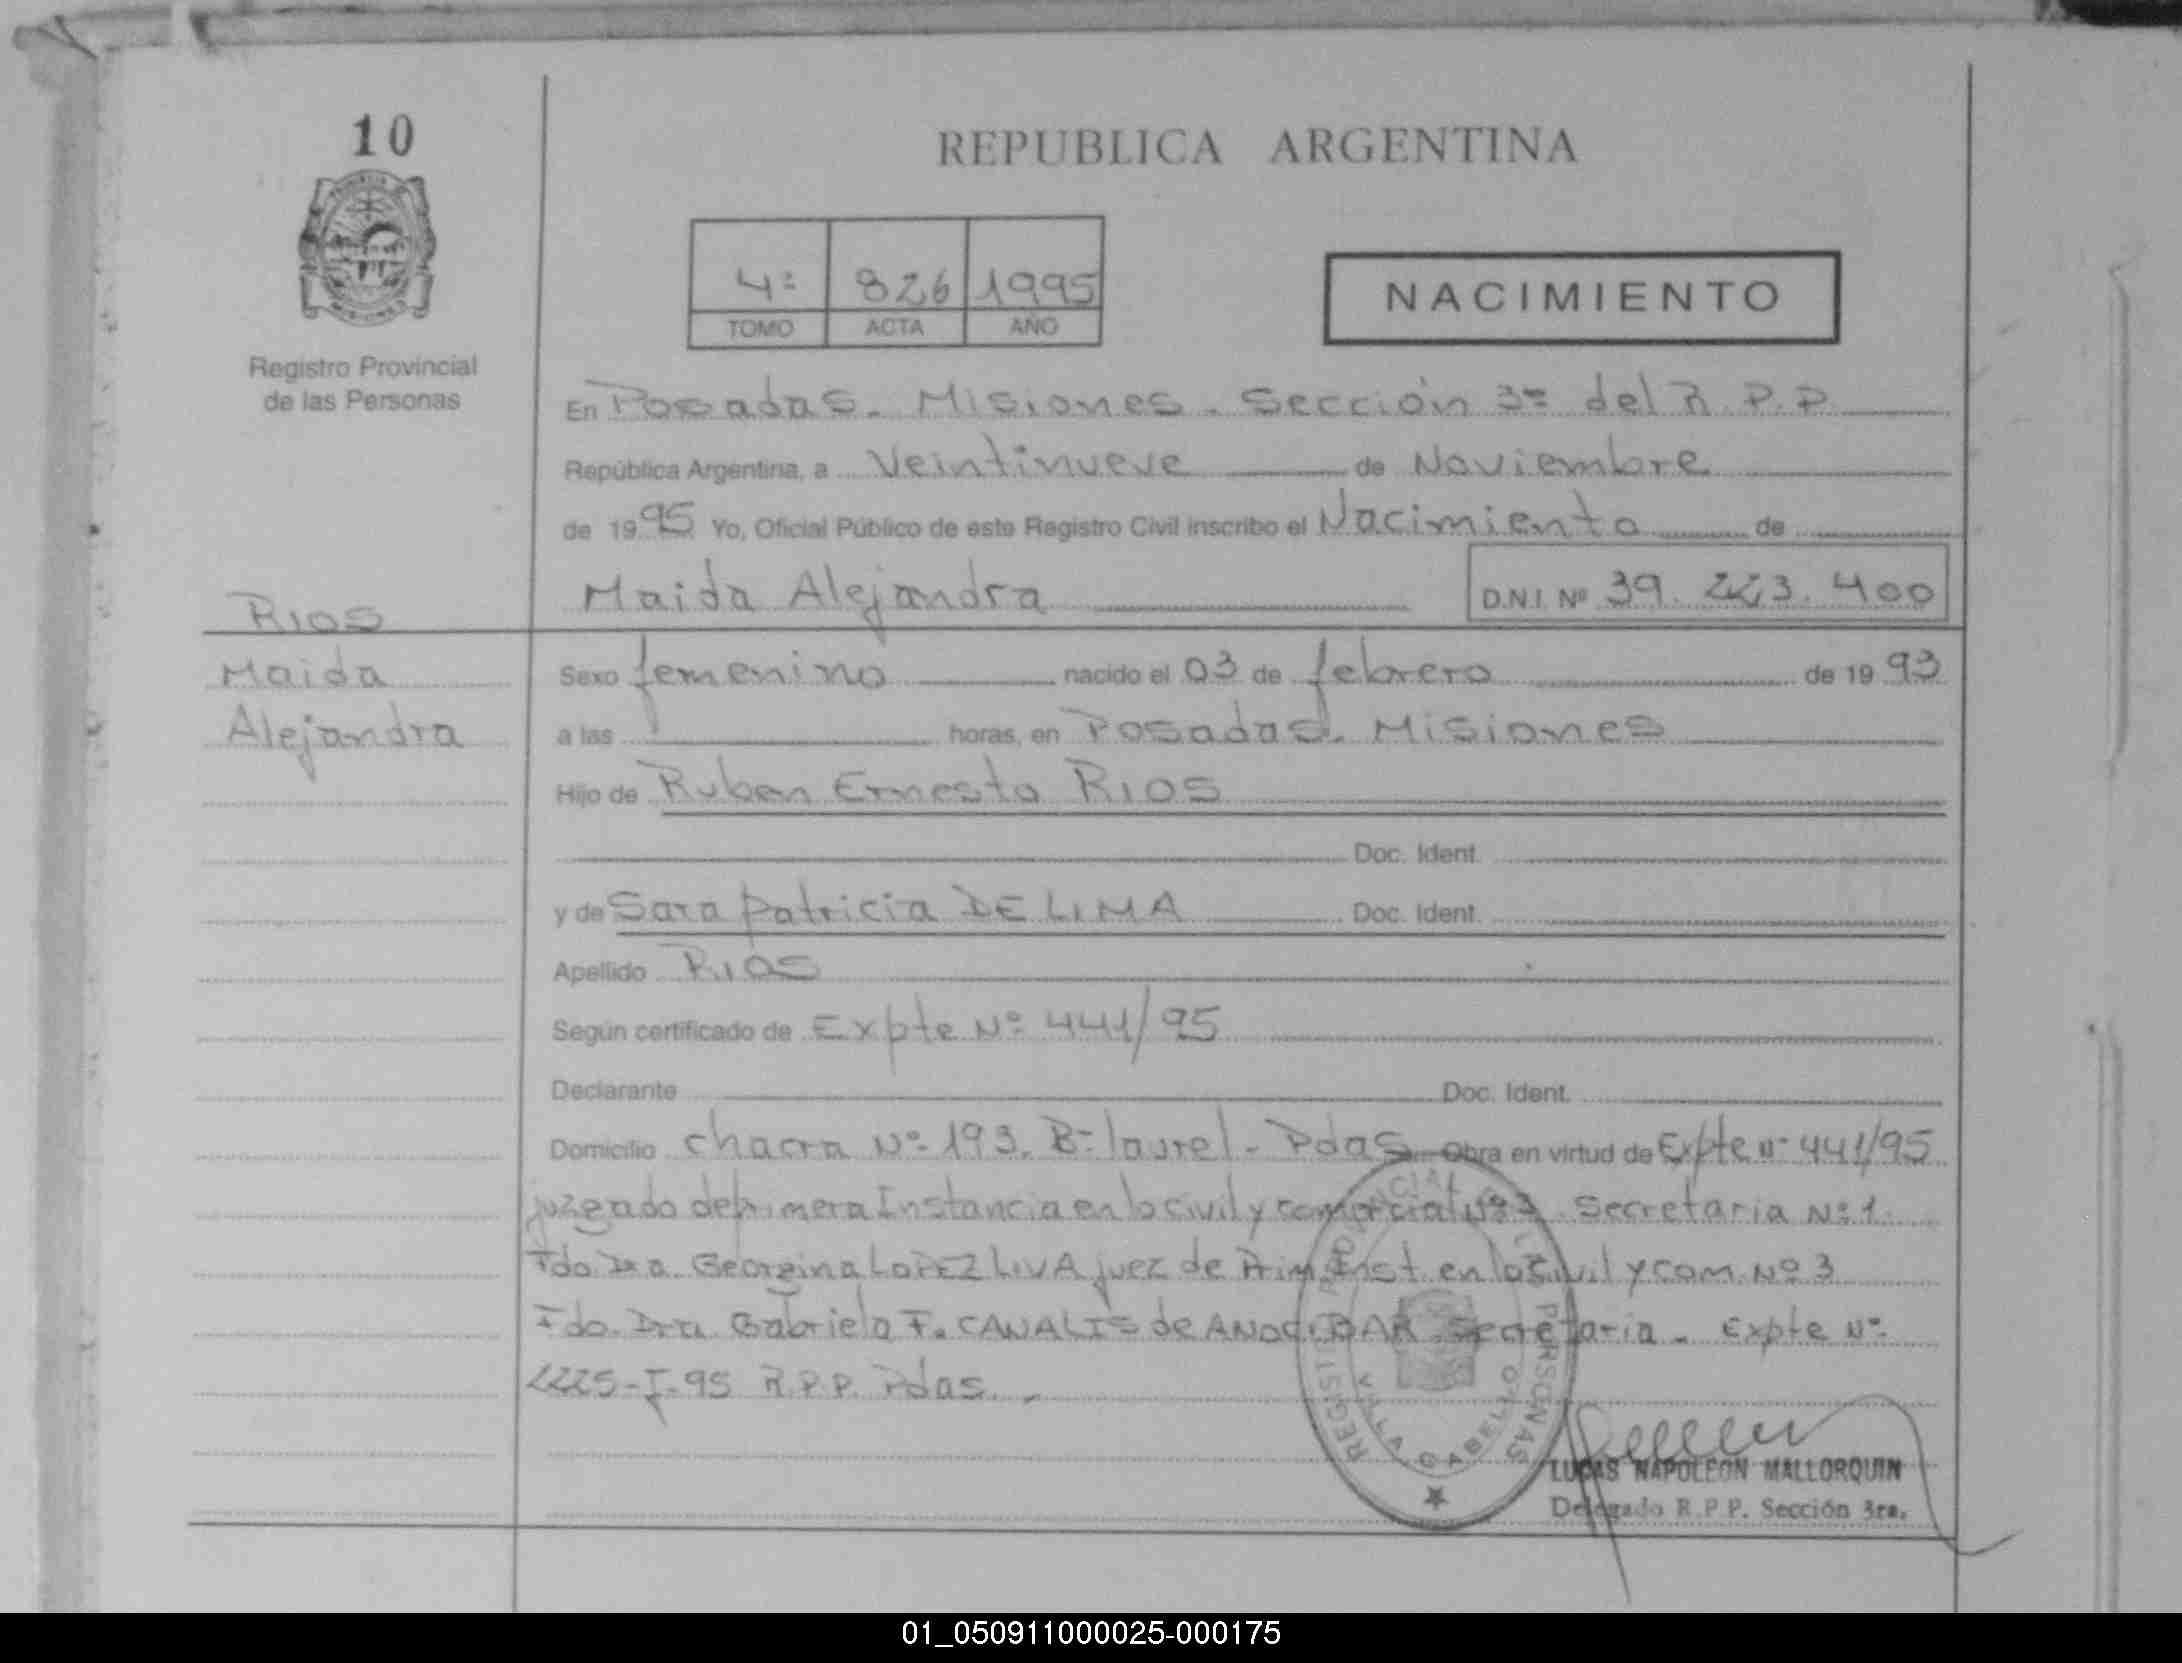 10
REPUBLICA ARGENTINA
4ª 826 1995
TOMO ACTA AÑO
NACIMIENTO
Registro Provincial
de las Personas
En Posadas. Misiones. Sección 3ª del R.P.P.
República Argentina, a Veintinueve de Noviembre
de 1995 Yo, Oficial Público de este Registro Civil inscribo el Nacimiento de
Maida Alejandra D.N.I. Nº 39.223.400
RIOS
Maida
Alejandra
Sexo femenino nacido el 03 de febrero de 1993
a las horas, en Posadas. Misiones
Hijo de Ruben Ernesto RIOS
Doc. Ident.
y de Sara Patricia DE LIMA Doc. Ident.
Apellido RIOS
Según certificado de Expte Nº 441/95
Declarante Doc. Ident.
Domicilio chacra Nº 193. Bº laurel - Pdas Obra en virtud de Expte nº 441/95
juzgado de primera Instancia en lo civil y comercial Nº 3 Secretaria Nº 1
Fdo. Dra. Georgina LOPEZ LIVA juez de Prim. Inst. en lo Civil y com. Nº 3
Fdo. Dra. Gabriela F. CANALIS de ANOCIBAR Secretaria. Expte Nº
2225-I-95 R.P.P. Pdas.
REGISTRO PROVINCIAL DE LAS PERSONAS
VILLA CABELLO
LUCAS NAPOLEON MALLORQUIN
Delegado R.P.P. Sección 3ra.
01_050911000025-000175